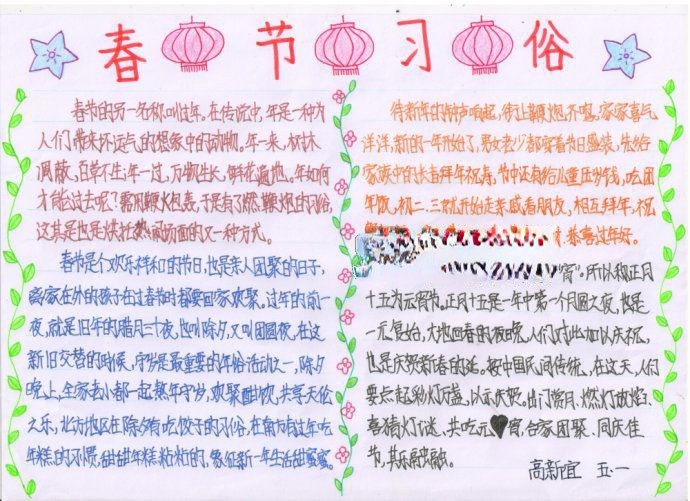 春节习俗
春节的另一名称叫过年。在传说中,年是一种为
人们带来坏运气的想象中的动物。年一来,树木
凋敝,百草不生;年一过,万物生长,鲜花遍地。年如何
才能过去呢?需用鞭炮轰,于是有了燃鞭炮的习俗,
这其实也是烘托热闹场面的又一种方式。
春节是个欢乐祥和的节日,也是亲人团聚的日子,
离家在外的孩子在过春节时都要回家欢聚。过年的前一
夜,就是旧年的腊月三十夜,也叫除夕,又叫团圆夜,在这
新旧交替的时候,守岁是最重要的年俗活动之一,除夕
晚上,全家老小都一起熬年守岁,欢聚酣饮,共享天伦
之乐,北方地区在除夕有吃饺子的习俗,在南方有过年吃
年糕的习惯,甜甜年糕粘粘的,象征新一年生活甜蜜蜜。
待新年的钟声响起,街上鞭炮齐鸣,家家喜气
洋洋,新的一年开始了,男女老少都穿着节日盛装,先给
家族中的长者拜年祝寿,节中还有给儿童压岁钱,吃团
年饭,初二、三就开始走亲戚看朋友,相互拜年,祝
恭喜过年好。
宵”。所以称正月
十五为元宵节。正月十五是一年中第一个月圆之夜,也是
一元复始,大地回春的夜晚,人们对此加以庆祝,
也是庆贺新春的延。按中国民间传统,在这天,人们
要点起彩灯万盏,以示庆贺。出门赏月、燃灯放焰、
喜猜灯谜、共吃元宵,合家团聚、同庆佳
节,其乐融融。
高新宜 五·一